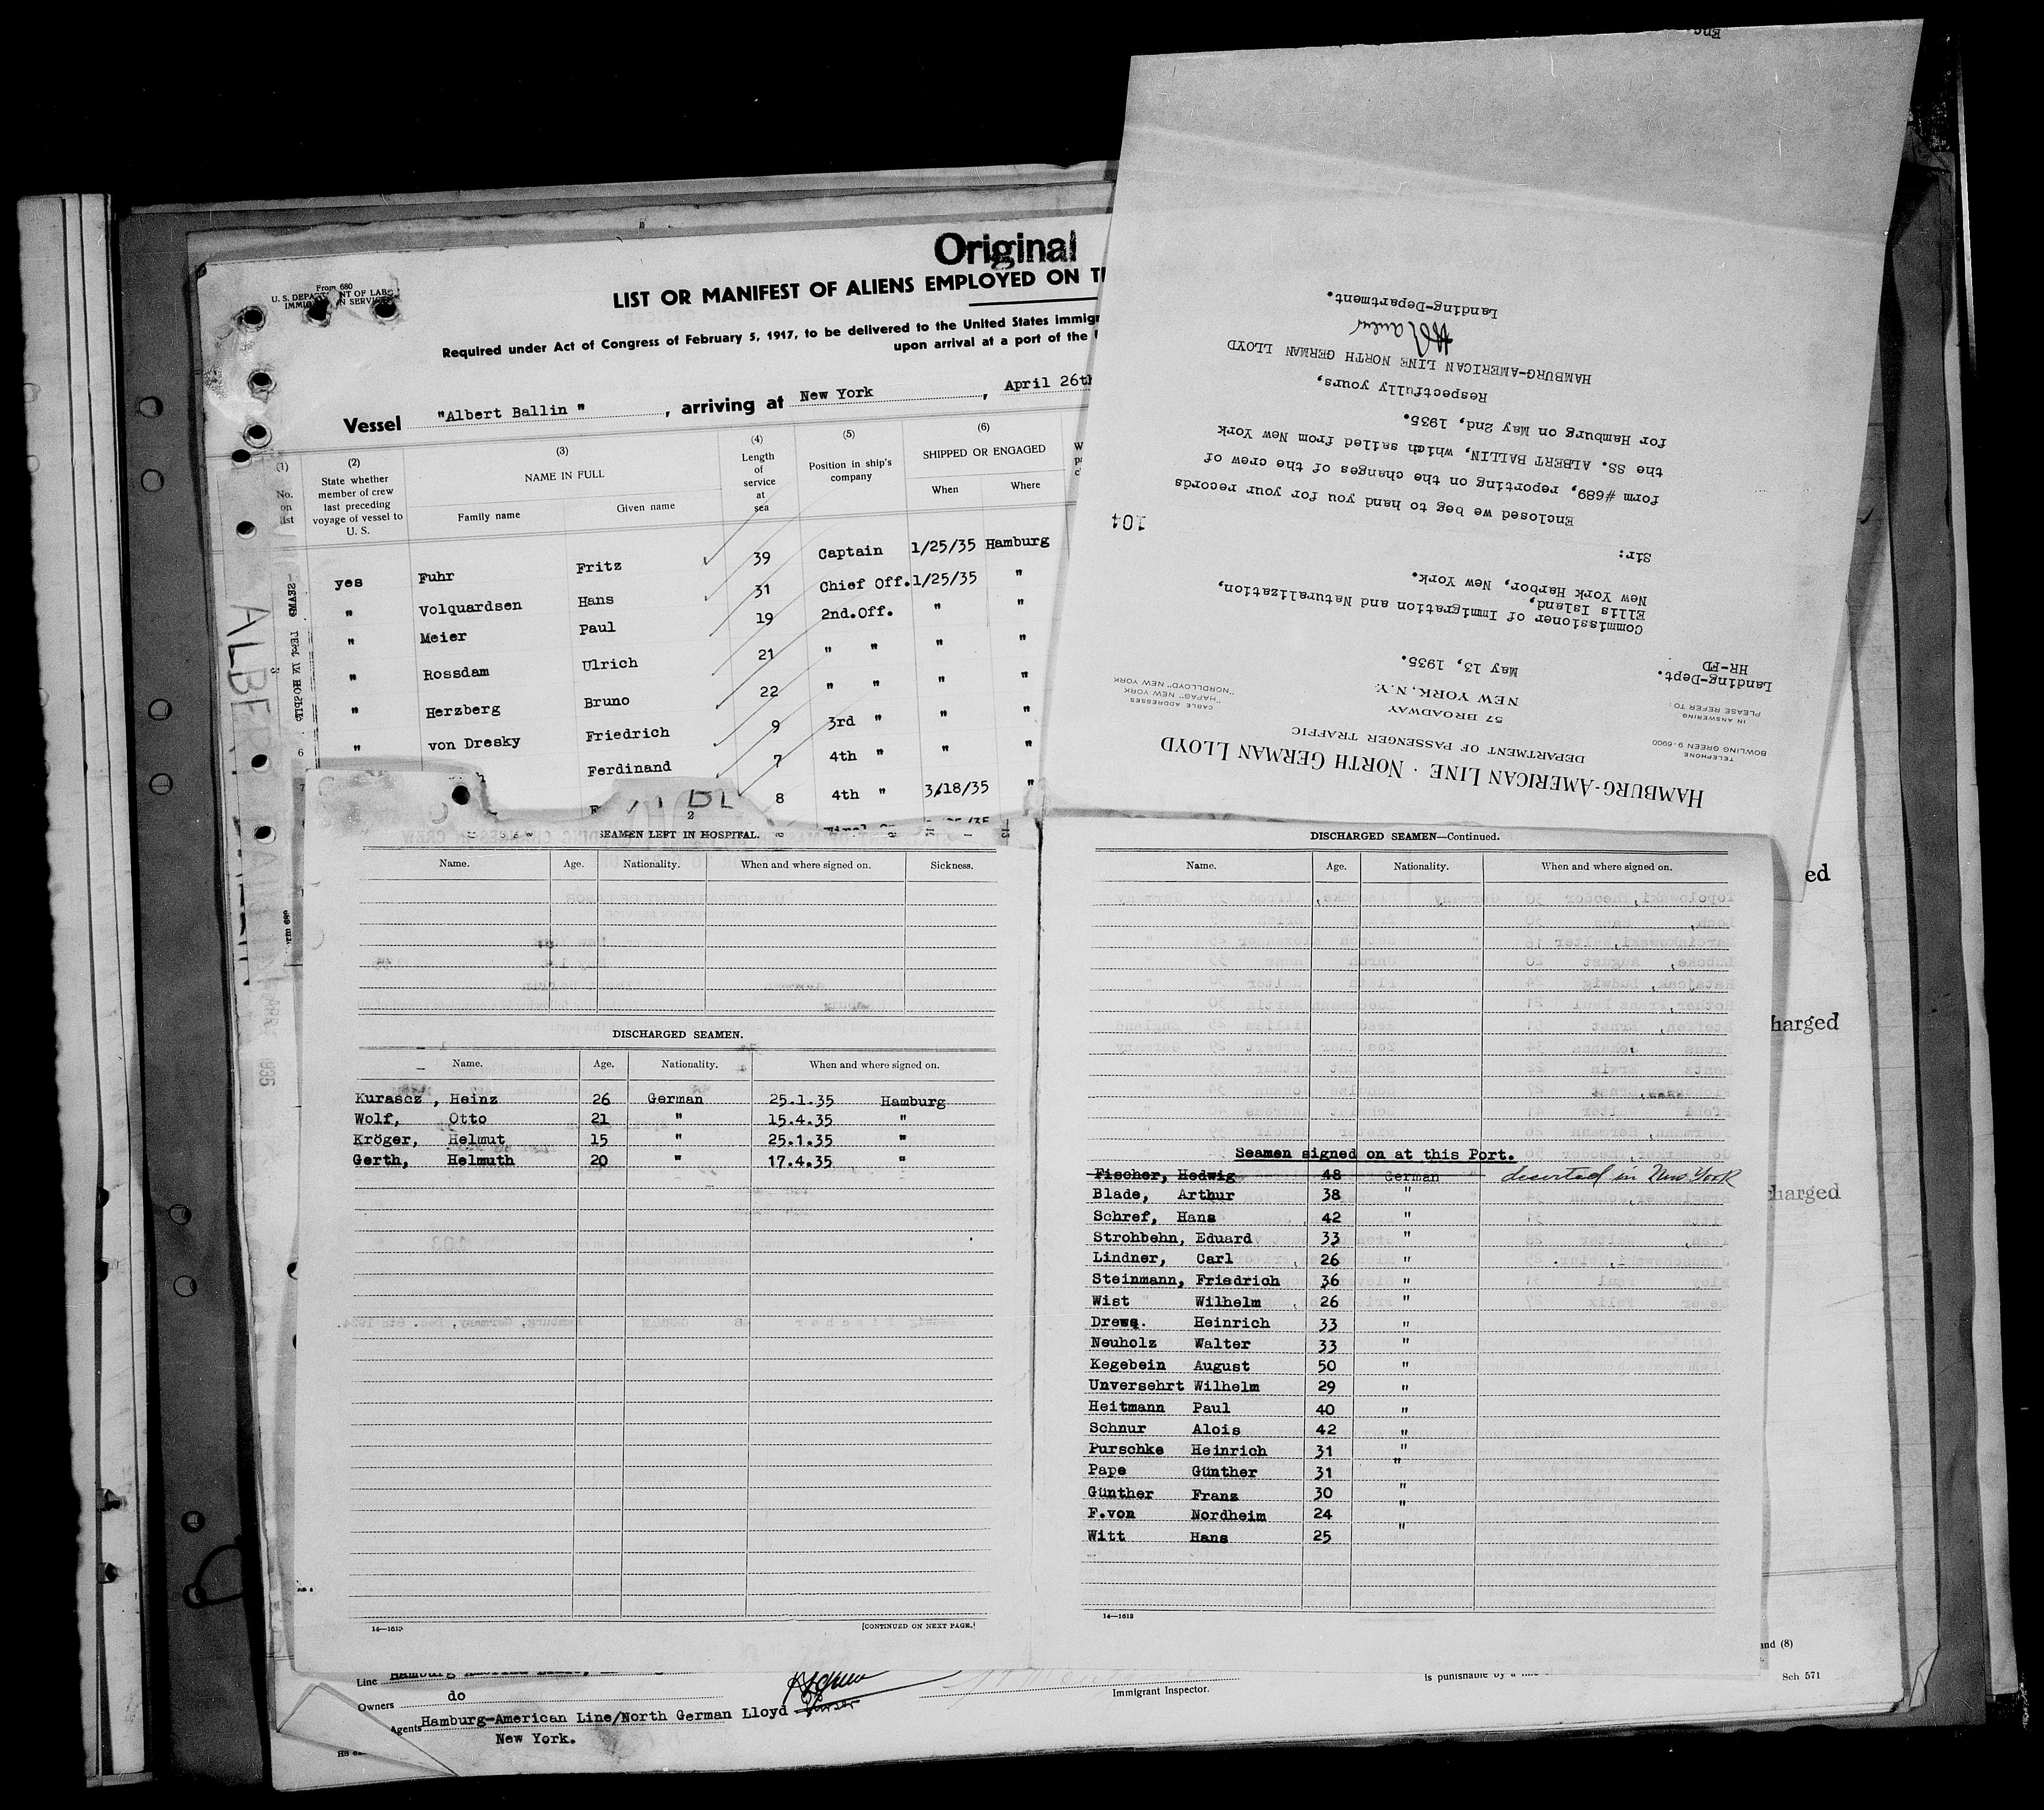 Original
LIST OR MANIFEST OF ALIENS EMPLOYED ON
Required under Act of Congress of February 5, 1917, to be delivered to the United States
upon arrival at a port of the
Form 680
Vessel "Albert Ballin" , arriving at New York , April 26th
(1) (2) (3) (4) (5) (6)
No. on list
State whether member of crew last preceding voyage of vessel to U. S.
NAME IN FULL
Family name Given name
Length of service at sea
Position in ship's company
SHIPPED OR ENGAGED
When Where
yes Fuhr Fritz 39 Captain 1/25/35 Hamburg
" Volquardsen Hans 31 Chief Off. 1/25/35 "
" Meier Paul 19 2nd.Off. " "
" Rossdam Ulrich 21 " " " "
" Herzberg Bruno 22 " " " "
" von Dresky Friedrich 9 3rd " " "
Ferdinand 7 4th " " "
8 4th " 3/18/35 "
HAMBURG-AMERICAN LINE · NORTH GERMAN LLOYD
DEPARTMENT OF PASSENGER TRAFFIC
57 BROADWAY
NEW YORK, N.Y.
TELEPHONE
BOWLING GREEN 9-6900
IN ANSWERING
PLEASE REFER TO:
Landing-Dept.
HR-FD
CABLE ADDRESSES
"HAPAG" NEW YORK
"NORDLLOYD" NEW YORK
May 13, 1935.
Commissioner of Immigration and Naturalization,
Ellis Island,
New York Harbor, New York.
Sir:
104
Enclosed we beg to hand you for your records
form #689, reporting on the changes of the crew of
the SS. ALBERT BALLIN, which sailed from New York
for Hamburg on May 2nd, 1935.
Respectfully yours,
HAMBURG-AMERICAN LINE NORTH GERMAN LLOYD
Landing-Department.
2
SEAMEN LEFT IN HOSPITAL.
Name. Age. Nationality. When and where signed on. Sickness.
DISCHARGED SEAMEN.
Name. Age. Nationality. When and where signed on.
Kurascz , Heinz 26 German 25.1.35 Hamburg
Wolf, Otto 21 " 15.4.35 "
Kröger, Helmut 15 " 25.1.35 "
Gerth, Helmuth 20 " 17.4.35 "
14—1613 [CONTINUED ON NEXT PAGE.]
DISCHARGED SEAMEN—Continued.
Name. Age. Nationality. When and where signed on.
Seamen signed on at this Port.
Fischer, Hedwig 48 German deserted in New York
Blade, Arthur 38 "
Schref, Hans 42 "
Strohbehn, Eduard 33 "
Lindner, Carl 26 "
Steinmann, Friedrich 36 "
Wist Wilhelm 26 "
Drews. Heinrich 33 "
Neuholz Walter 33 "
Kegebein August 50 "
Unversehrt Wilhelm 29 "
Heitmann Paul 40 "
Schnur Alois 42 "
Purschke Heinrich 31 "
Pape Günther 31 "
Günther Franz 30 "
F.von Nordheim 24 "
Witt Hans 25 "
14—1613
ed
harged
charged
and (8)
Sch 571
Line
Owners do
Agents Hamburg-American Line/North German Lloyd
New York.
Immigrant Inspector.
is punishable by a